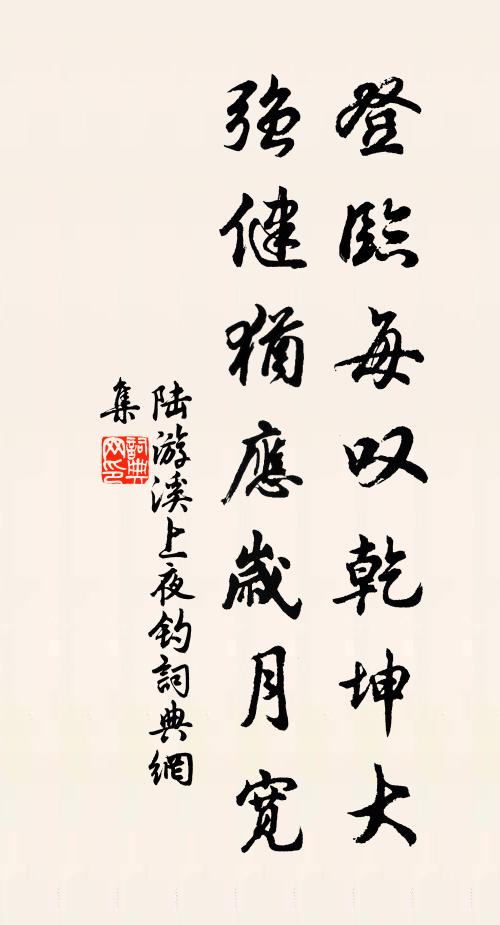 登臨每叹乾坤大
強健猶應歲月寬
陆游溪上夜釣詞典網
集
詞典
网印